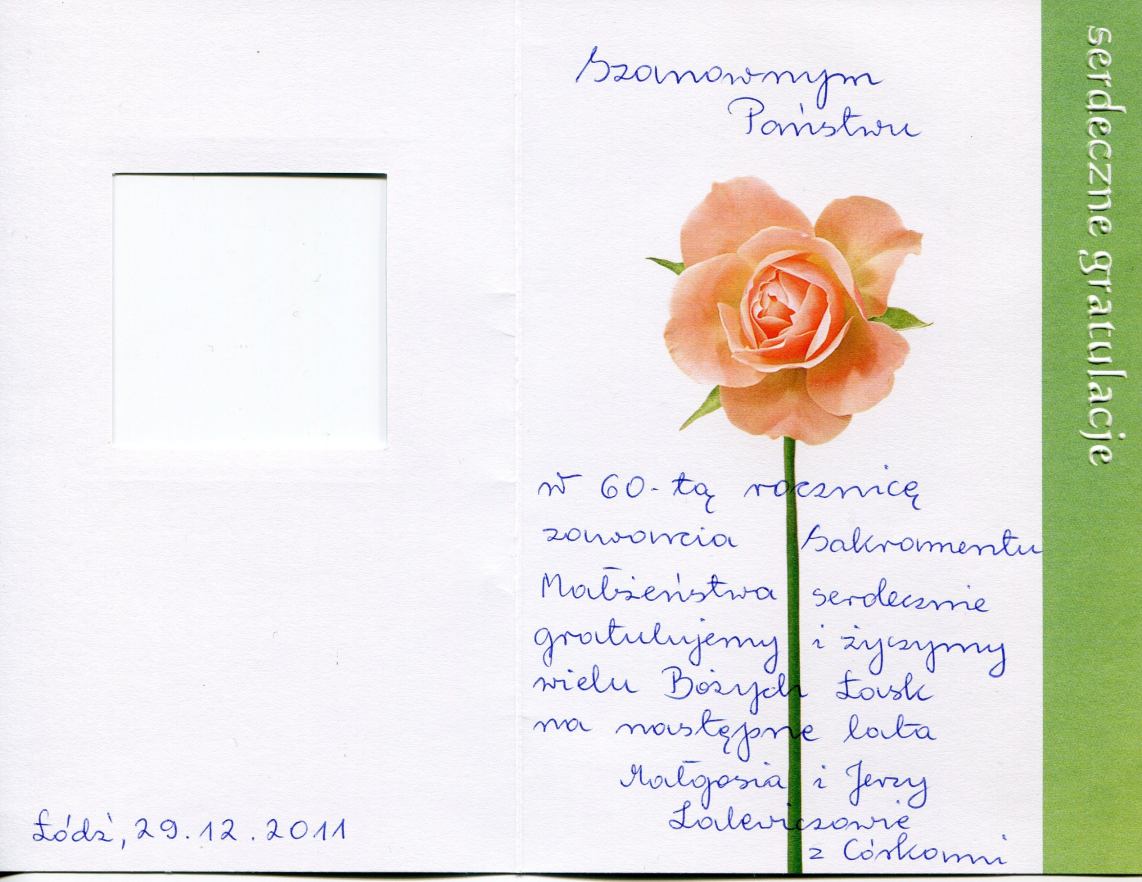 Szanownym
Państwu
w 60-tą rocznicę
zawarcia Sakramentu
Małżeństwa serdecznie
gratulujemy i życzymy
wielu Bożych Łask
na następne lata
Małgosia i Jerzy
Lalewiczowie
z Córkami
Łódź, 29.12.2011
serdeczne gratulacje